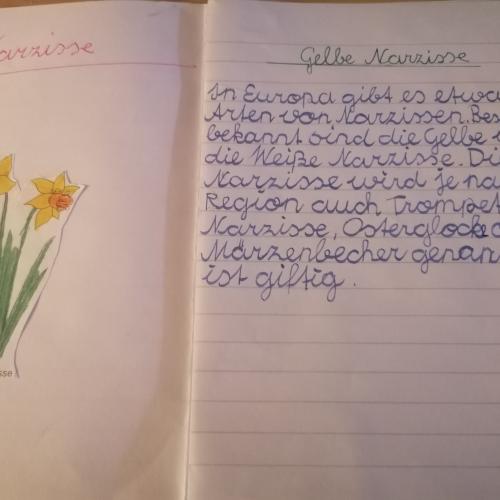 Narzisse
Gelbe Narzisse
In Europa gibt es etwa
Arten von Narzissen. Bes
bekannt sind die Gelbe
die Weiße Narzisse. Di
Narzisse wird je na
Region auch Trompet
Narzisse, Osterglocke o
Märzenbecher genan
ist giftig.
sse